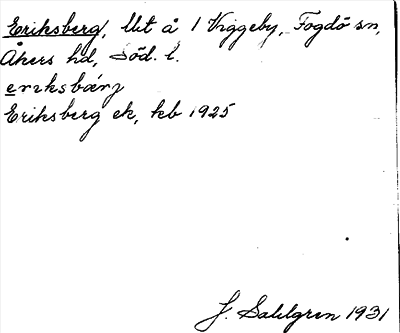 Eriksberg, lht å 1 Viggeby, Fogdö sn,
Åkers hd, Söd. l.
eriksbærj
Eriksberg ek, kb 1925
J. Sahlgren 1931